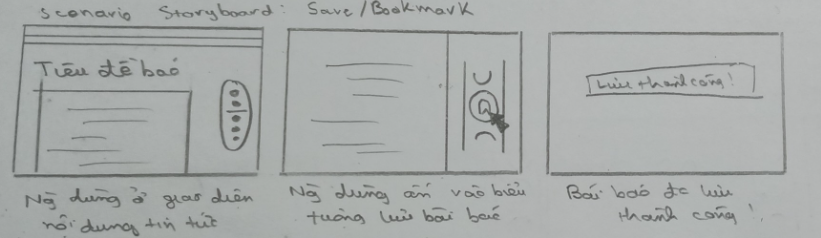 Scenario Storyboard: Save/Bookmark
Tiêu đề báo
Lưu thành công!
Ng dùng ở giao diện
nội dung tin tức
Ng dùng ấn vào biểu
tượng lưu bài báo
Bài báo đc lưu
thành công!